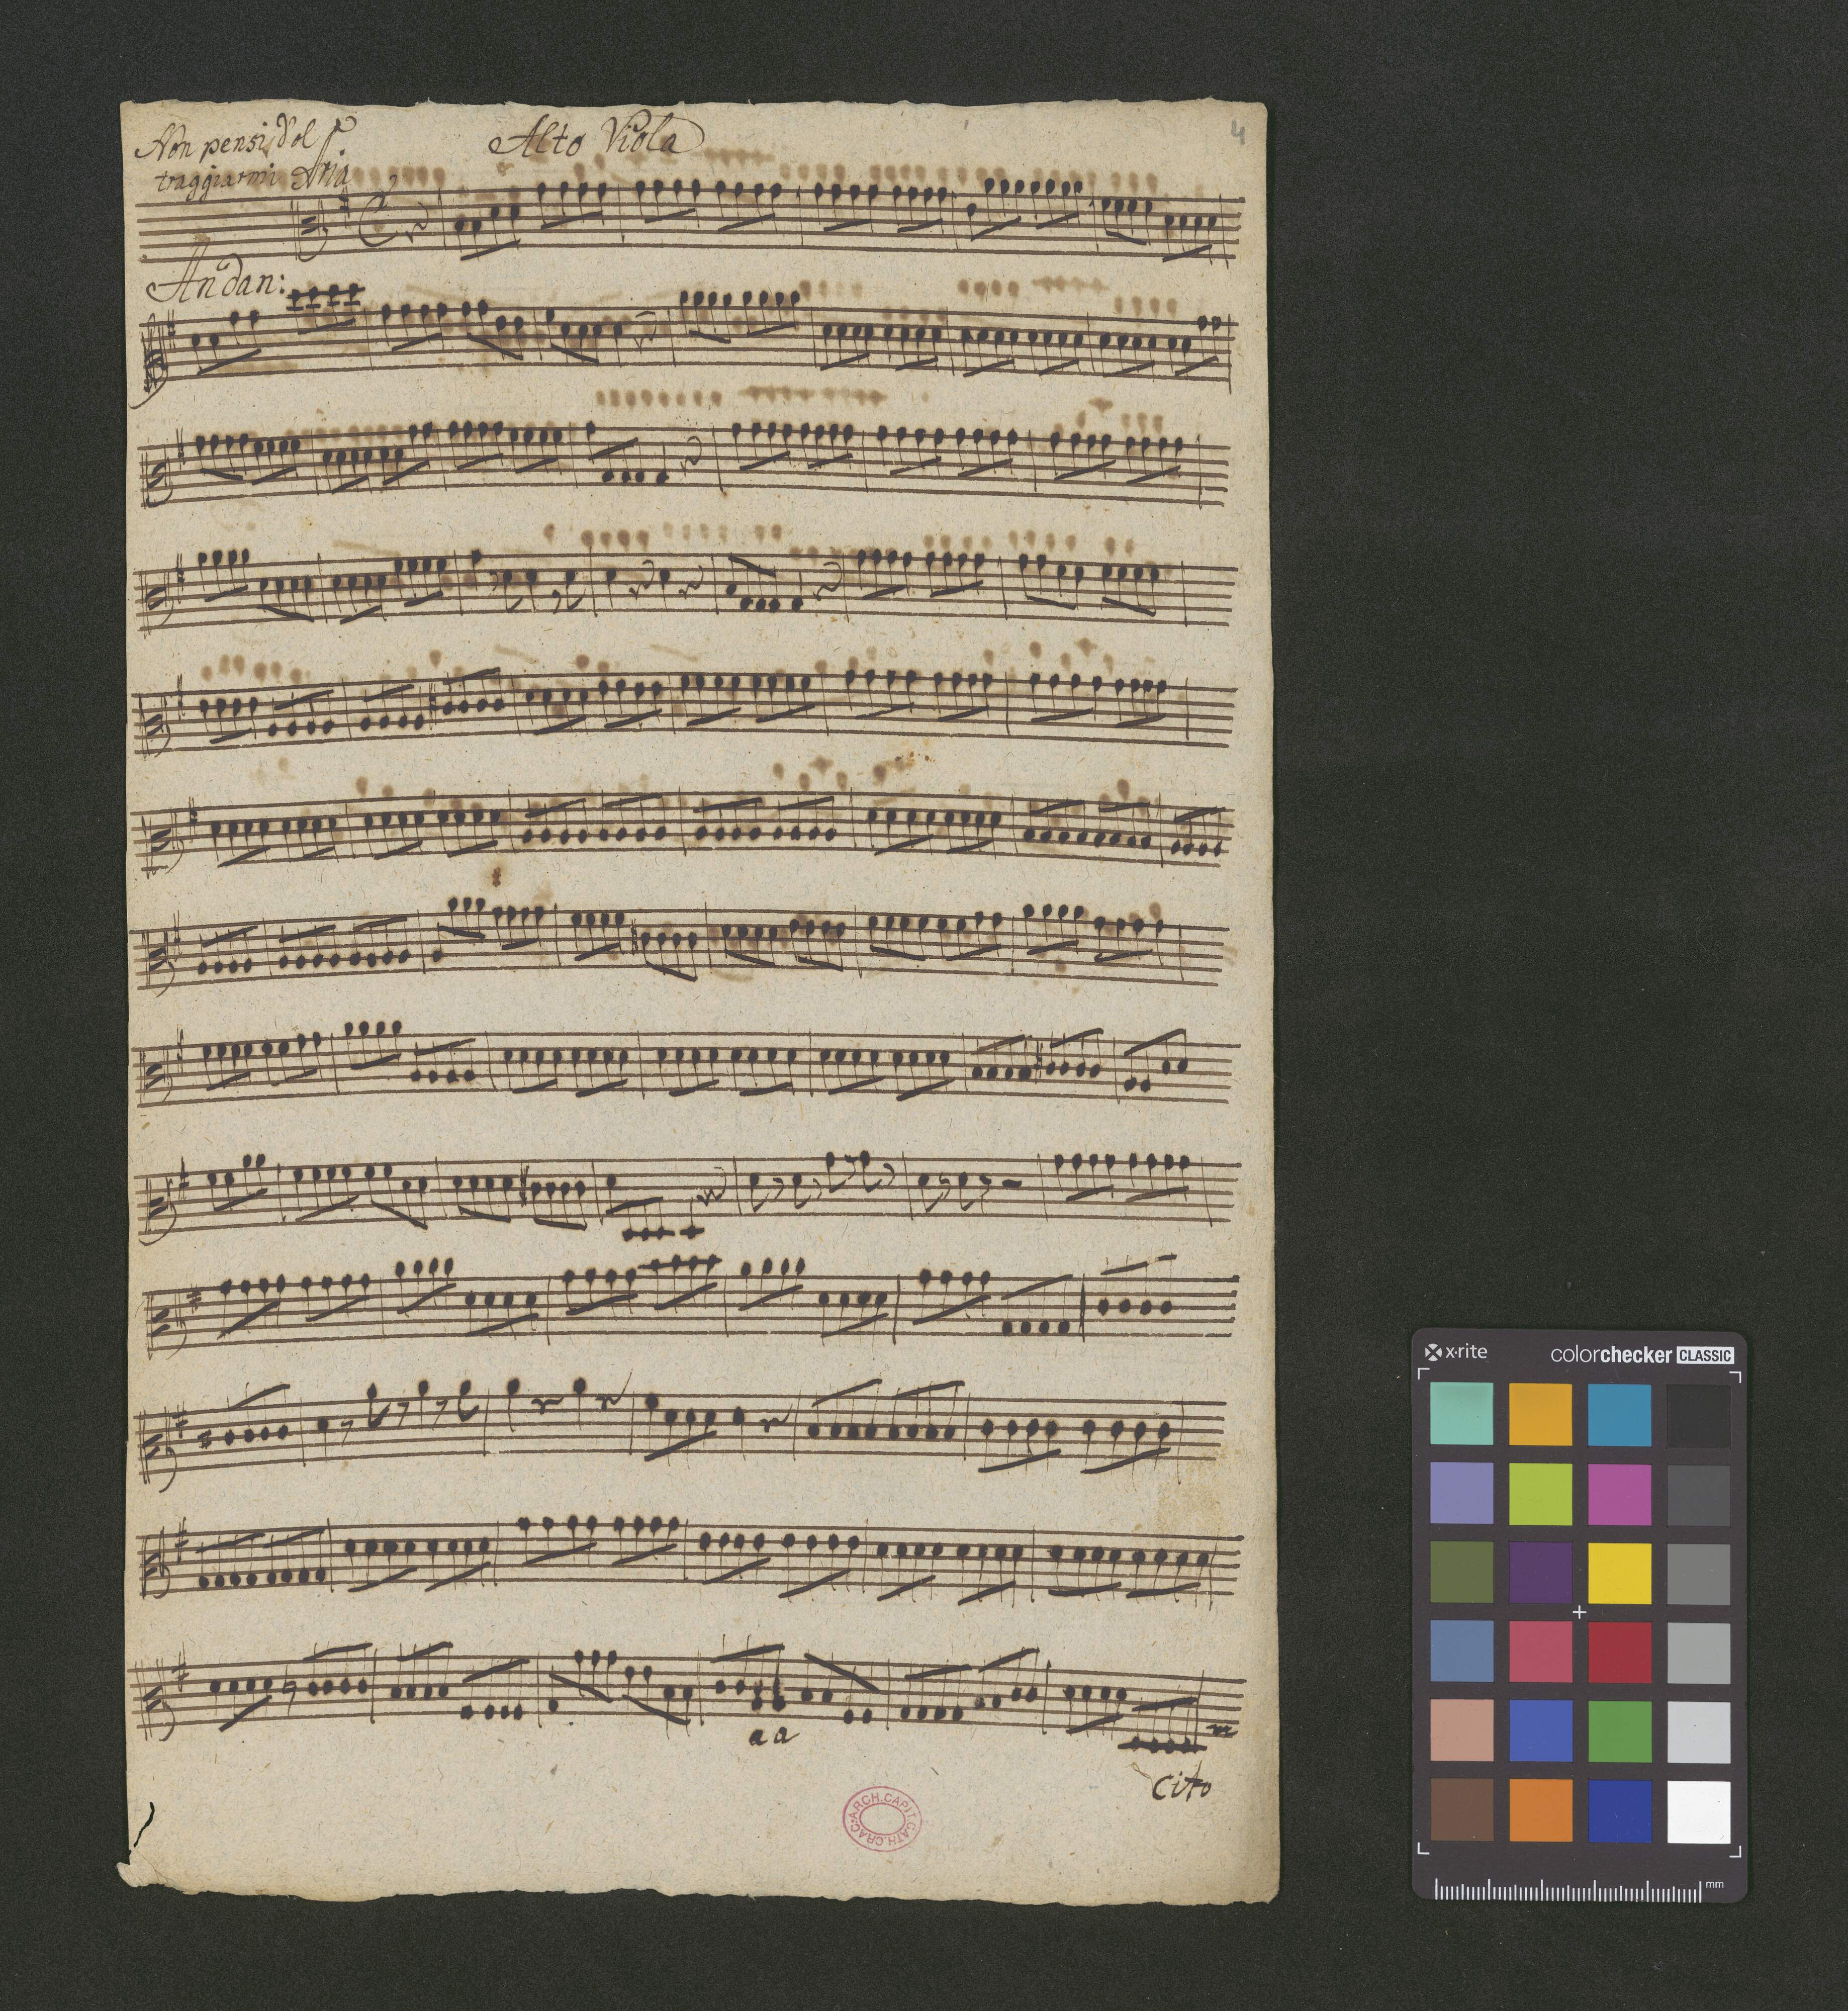 Non pensi d'ol
Alto Viola
4
traggiarmi Aria
Andan:
a a
Cito
ARCH.CAPIT.CATH.CRAC.
x-rite
colorchecker CLASSIC
mm